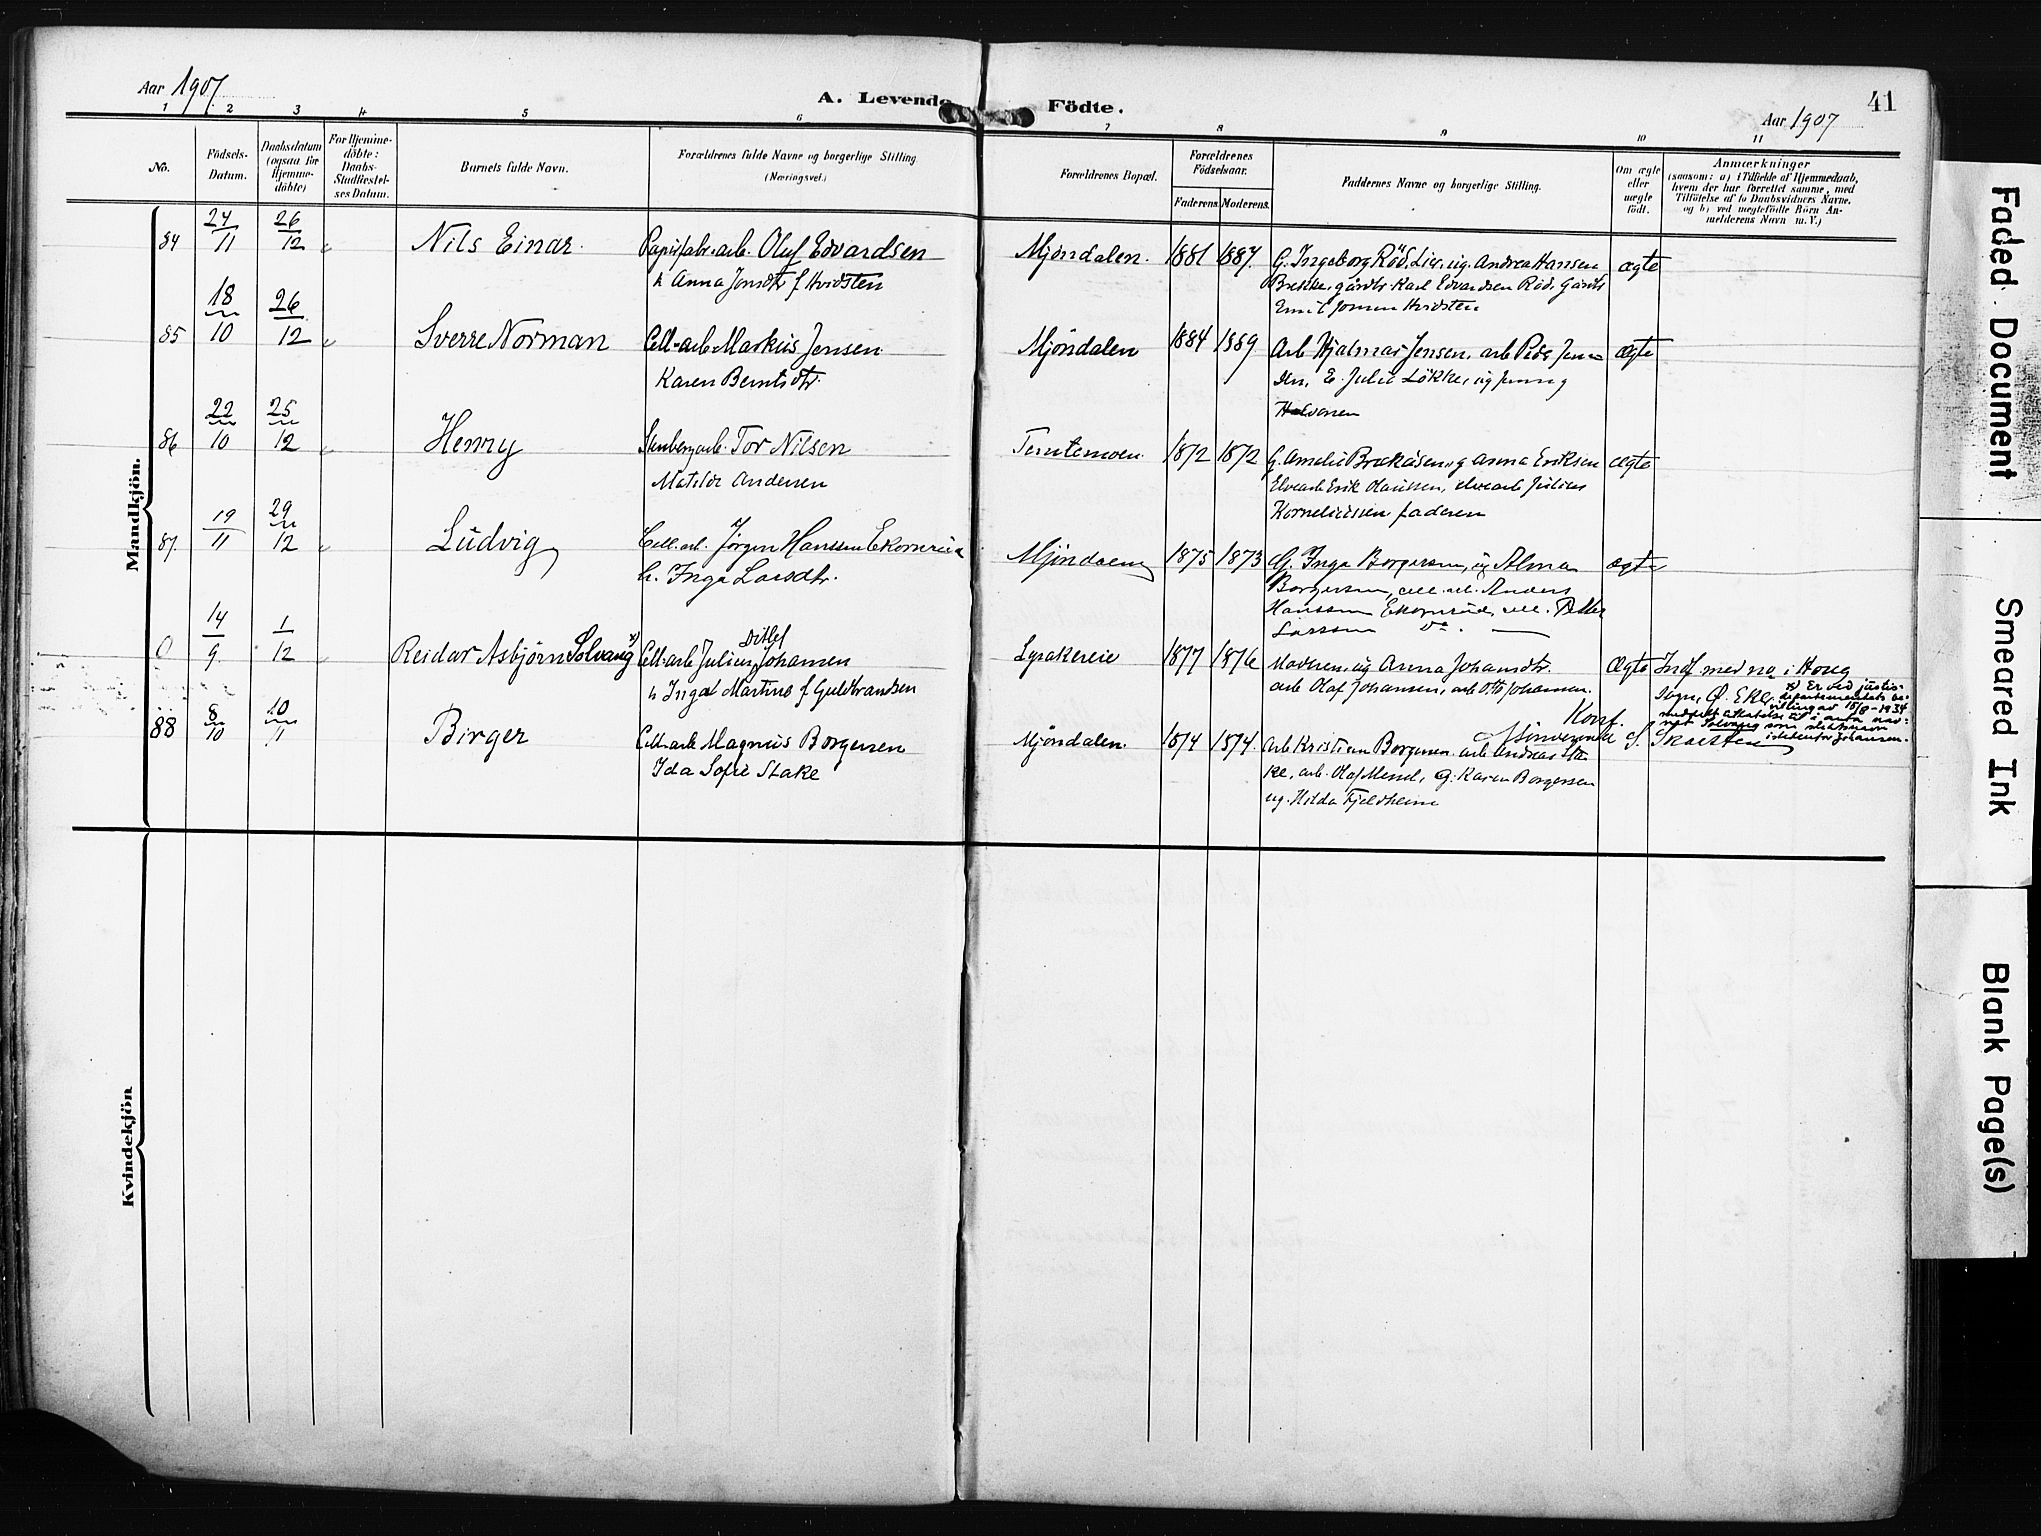 Aar 1907
A. Levende Födte.
41
Aar 1907
1 2 3 4 5 6 7 8 9 10 11
No.
Födsels-Datum.
Daabsdatum (ogsaa for Hjemme-döbte)
For Hjemme-döbte: Daabs-Stadfæstel-ses Datum.
Barnets fulde Navn.
Forældrenes fulde Navne og borgerlige Stilling.
(Næringsvei.)
Forældrenes Bopæl.
Forældrenes Födselsaar.
Faderens. Moderens.
Faddernes Navne og borgerlige Stilling.
Om ægte eller uægte födt.
Anmærkninger
(saasom: a) i Tilfælde af Hjemmedaab,
hvem der har forrettet samme, med
Tilföielse af to Daabsvidners Navne,
og b) ved uægtefödte Börn An-
melderens Navn m. V.)
Mandkjön.
84 24/11 26/12 Nils Einar. Papirfabr.arb. Oluf Edvardsen Mjöndalen. 1881 1887. G. Ingeborg Röd, Lier, ug. Andrea Hansen ægte
h Anna Jonsdtr f Hvidsten
Brekke, gårdbr Karl Edvardsen Röd, Gårdb
Emil Jonsen Hvidsten
85 18/10 26/12 Sverre Norman Cell-arb Markus Jensen Mjöndalen 1884 1889 Arb Hjalmar Jensen, arb Peder Jen= ægte
Karen Berntsdtr.
sen, E. Julie Lökke, ug Jenny
Halvorsen
86 22/10 25/12 Henry Tor Nilsen 1872 1872 G. Amelie ug Anna Eriksen ægte
Matilde Andersen
Elvearb Erik Olaussen, elvearb Julius
Korneliussen faderen
87. 19/11 29/12 Ludvig Cell.arb. Jörgen Hanssen Ekornrud Mjöndalen 1875 1873 G. Inga Borgersen, ug Alma ægte
h. Inga Larsdtr.
Borgersen, cell.arb. Anders
Hanssen Ekornrud, cell. Peder
Larssen Do.
0 14/9 1/12 Reidar Asbjörn Solvang x) Cell-arb Julius Ditlef Johansen 1877 1876 Moderen, ug Anna Johansdtr. Ægte Indf med no i Houg
h Inga Martine f Guldbrandsen
arb Olaf Johansen, arb Otto Johansen.
Sogn, Ö. Eker. x) Er ved justis-
departementets be-
villing av 15/9-1934
meddelt tillatelse til å anta nav-
net Solvang som slektsnavn
istedenfor Johansen.
88 8/10 10/11 Birger Cell-arb Magnus Borgersen Mjöndalen. 1874 1874. Arb Kristian Borgersen. arb Andreas Sta
Ida Sofie Stake
ke, arb. Olaf G. Karen Borgersen
ug. Hilda Fjeldheim
Konf.
Kvindekjön
Faded Document
Smeared Ink
Blank Page(s)